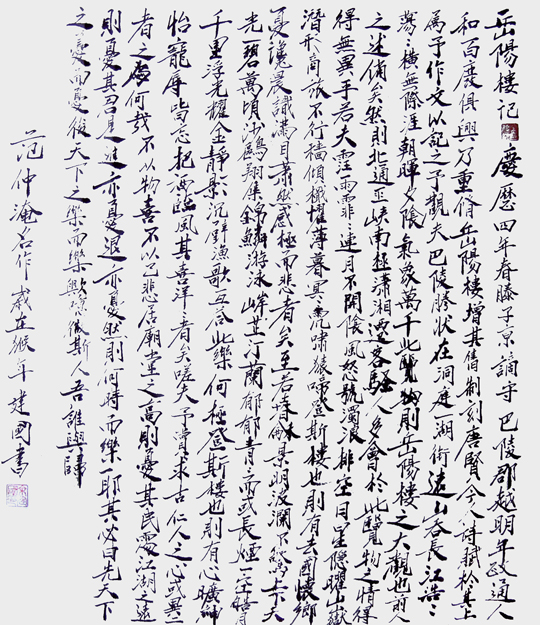 岳陽樓記 慶曆四年春滕子京謫守巴陵郡越明年政通人
和百廢俱興乃重脩岳陽樓增其舊制刻唐賢今人詩賦於其上
屬予作文以記之予觀夫巴陵勝狀在洞庭一湖銜遠山吞長江浩浩
蕩蕩橫無際涯朝暉夕陰氣象萬千此覽物則岳陽樓之大觀也前人
之述備矣然則北通巫峽南極瀟湘遷客騷人多會於此覽物之情得
得無異乎若夫霪雨霏霏連月不開陰風怒號濁浪排空日星隱曜山嶽
潛形商旅不行檣傾楫摧薄暮冥冥虎嘯猿啼登斯樓也則有去國懷鄉
憂讒畏譏滿目蕭然感極而悲者矣至若春和景明波瀾不驚上下天
光一碧萬頃沙鷗翔集錦鱗游泳岸芷汀蘭郁郁青青而或長煙一空皓月
千里浮光耀金靜影沉璧漁歌互答此樂何極登斯樓也則有心曠神
怡寵辱皆忘把酒臨風其喜洋洋者矣嗟夫予嘗求古仁人之心或異二
者之為何哉不以物喜不以己悲居廟堂之高則憂其民處江湖之遠
則憂其君是進亦憂退亦憂然則何時而樂耶其必曰先天下
之憂而憂後天下之樂而樂歟噫微斯人吾誰與歸
范仲淹名作 歲在猴年建國書